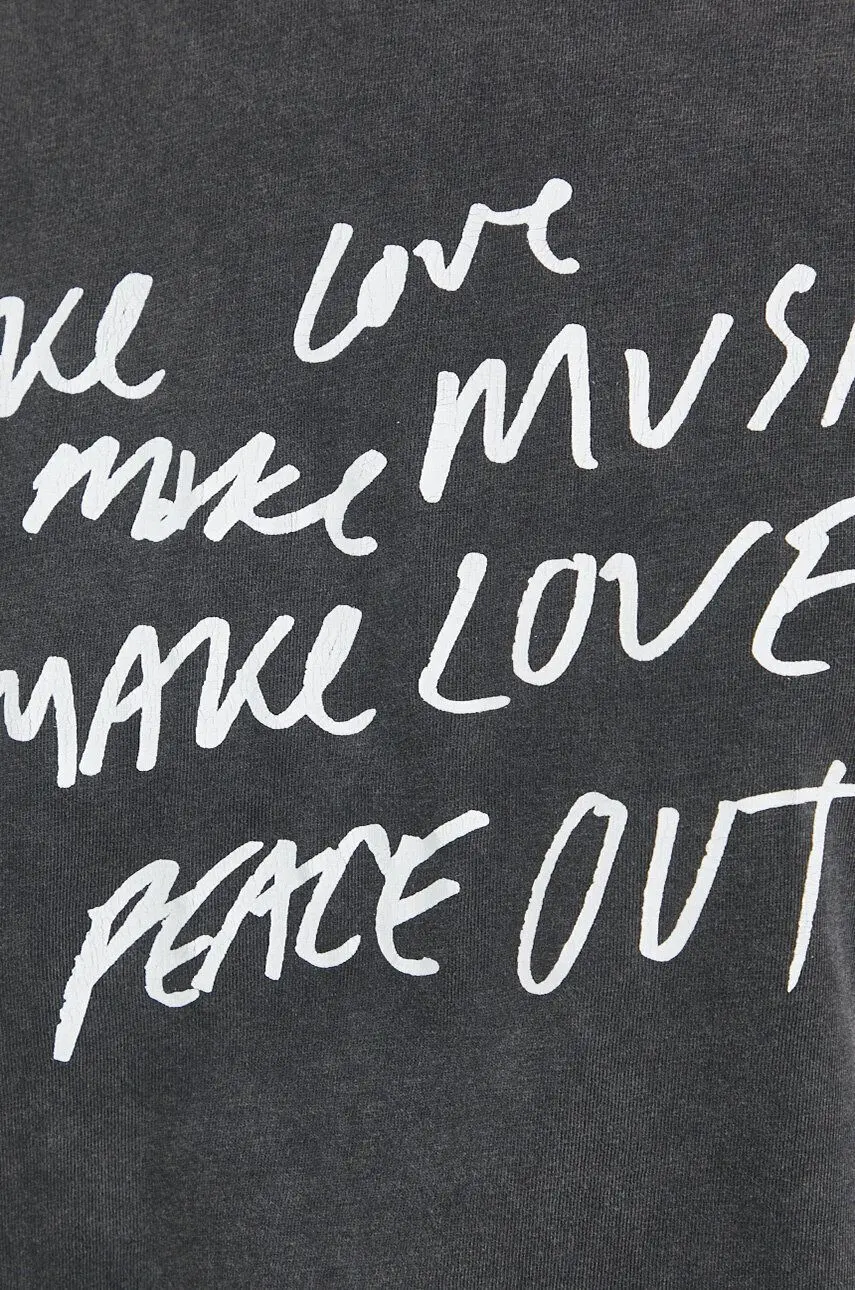 ake love
make MUSI
MAKe LOVE
PEACE OUT